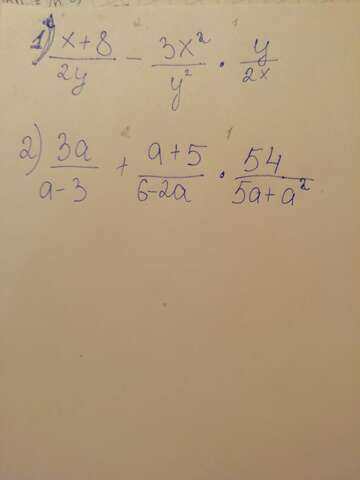 1) (x+8)/(2y) - (3x²)/(y²) · y/(2x)
2) (3a)/(a-3) + (a+5)/(6-2a) · 54/(5a+a²)